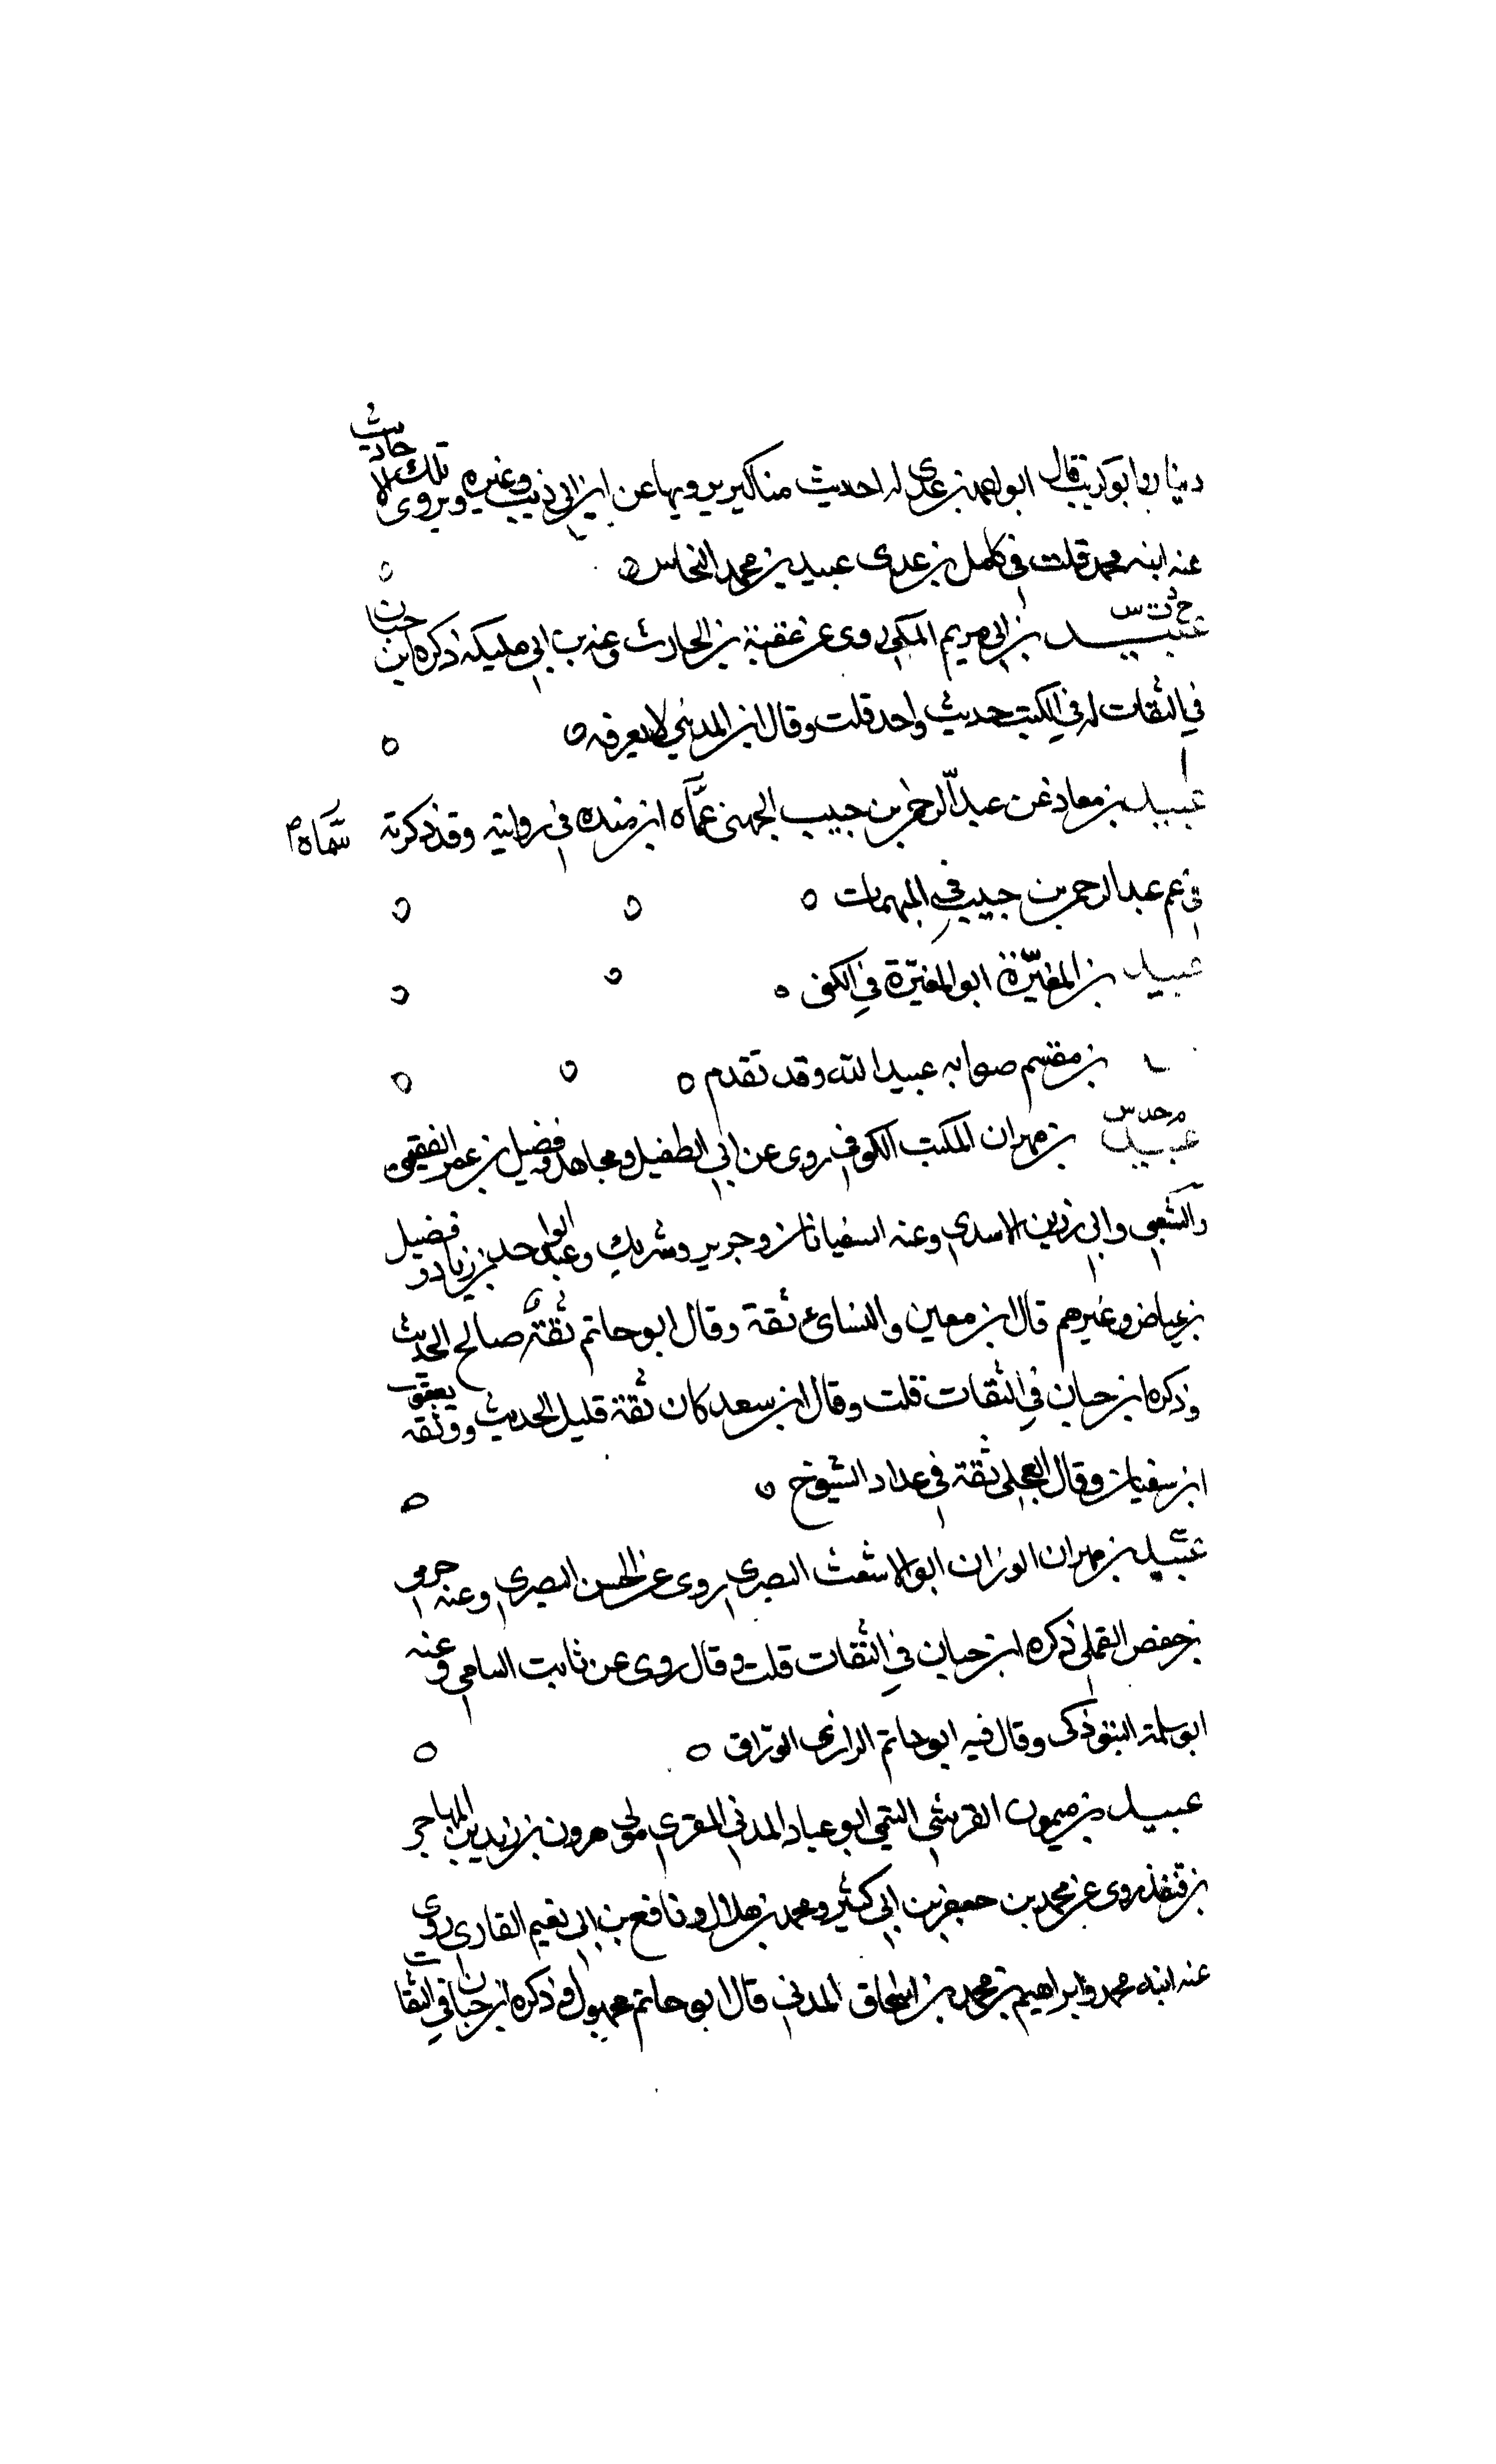 دينار وابو كريب قال ابو احمد بن عدي له احاديث مناكير يرويها عن ابن ابي ذيب وغيره ويروي تلك الاحاديث
عنه ابنه محمد قلت في كامل بن عدي عبيد بن محمد النحاس
خ د ت س
عبيد بن ابي مريم المكي روى عن عقبة بن الحارث وعنه بن ابي مليكة ذكره ابن حبان
في الثقات له في الكتب حديث واحد قلت وقال ابن المديني لا يعرفه
عبيد بن معاذ عن عبد الرحمن بن حبيب الجهني عن عمه سماه ابن منده في روايته وقد ذكرته
سماه
في عم عبد الرحمن بن حبيب في المبهمات
عبيد بن المغيرة ابو المغيرة في الكنى
بن مقسم صوابه عبيد الله وقد تقدم
م خد س
عبيد بن مهران المكتب الكوفي روى عن ابي الطفيل ومجاهد وفضيل بن عمرو الفقيمي
والشعبي وابي رزين الاسدي وعنه السفيانان وجرير وشريك وعبد الواحد بن زياد وفضيل
بن عياض وغيرهم قال ابن معين والنسائي ثقة وقال ابو حاتم ثقة صالح الحديث
وذكره ابن حبان في الثقات قلت وقال ابن سعد كان ثقة قليل الحديث ووثقه يعقوب
ابن سفيان وقال العجلي ثقة في عداد الشيوخ
عبيد بن مهران الوزان ابو الاشعث البصري روى عن الحسن البصري وعنه حرمي
بن حفص القملي ذكره ابن حبان في الثقات قلت وقال روى عن ثابت البناني وعنه
ابو سلمة التبوذكي وقال فيه ابو حاتم الرازي الوراق
عبيد بن ميمون القرشي التيمي ابو عباد المدني المقري مولى هرون بن زيد بن المهاجر
بن قنفذ روى عن محمد بن جعفر بن ابي كثير ومحمد بن هلال ونافع بن ابي نعيم القاري روى
عنه ابنه محمد وابراهيم بن محمد بن اسحاق المدني قال ابو حاتم مجهول وذكره ابن حبان في الثقات